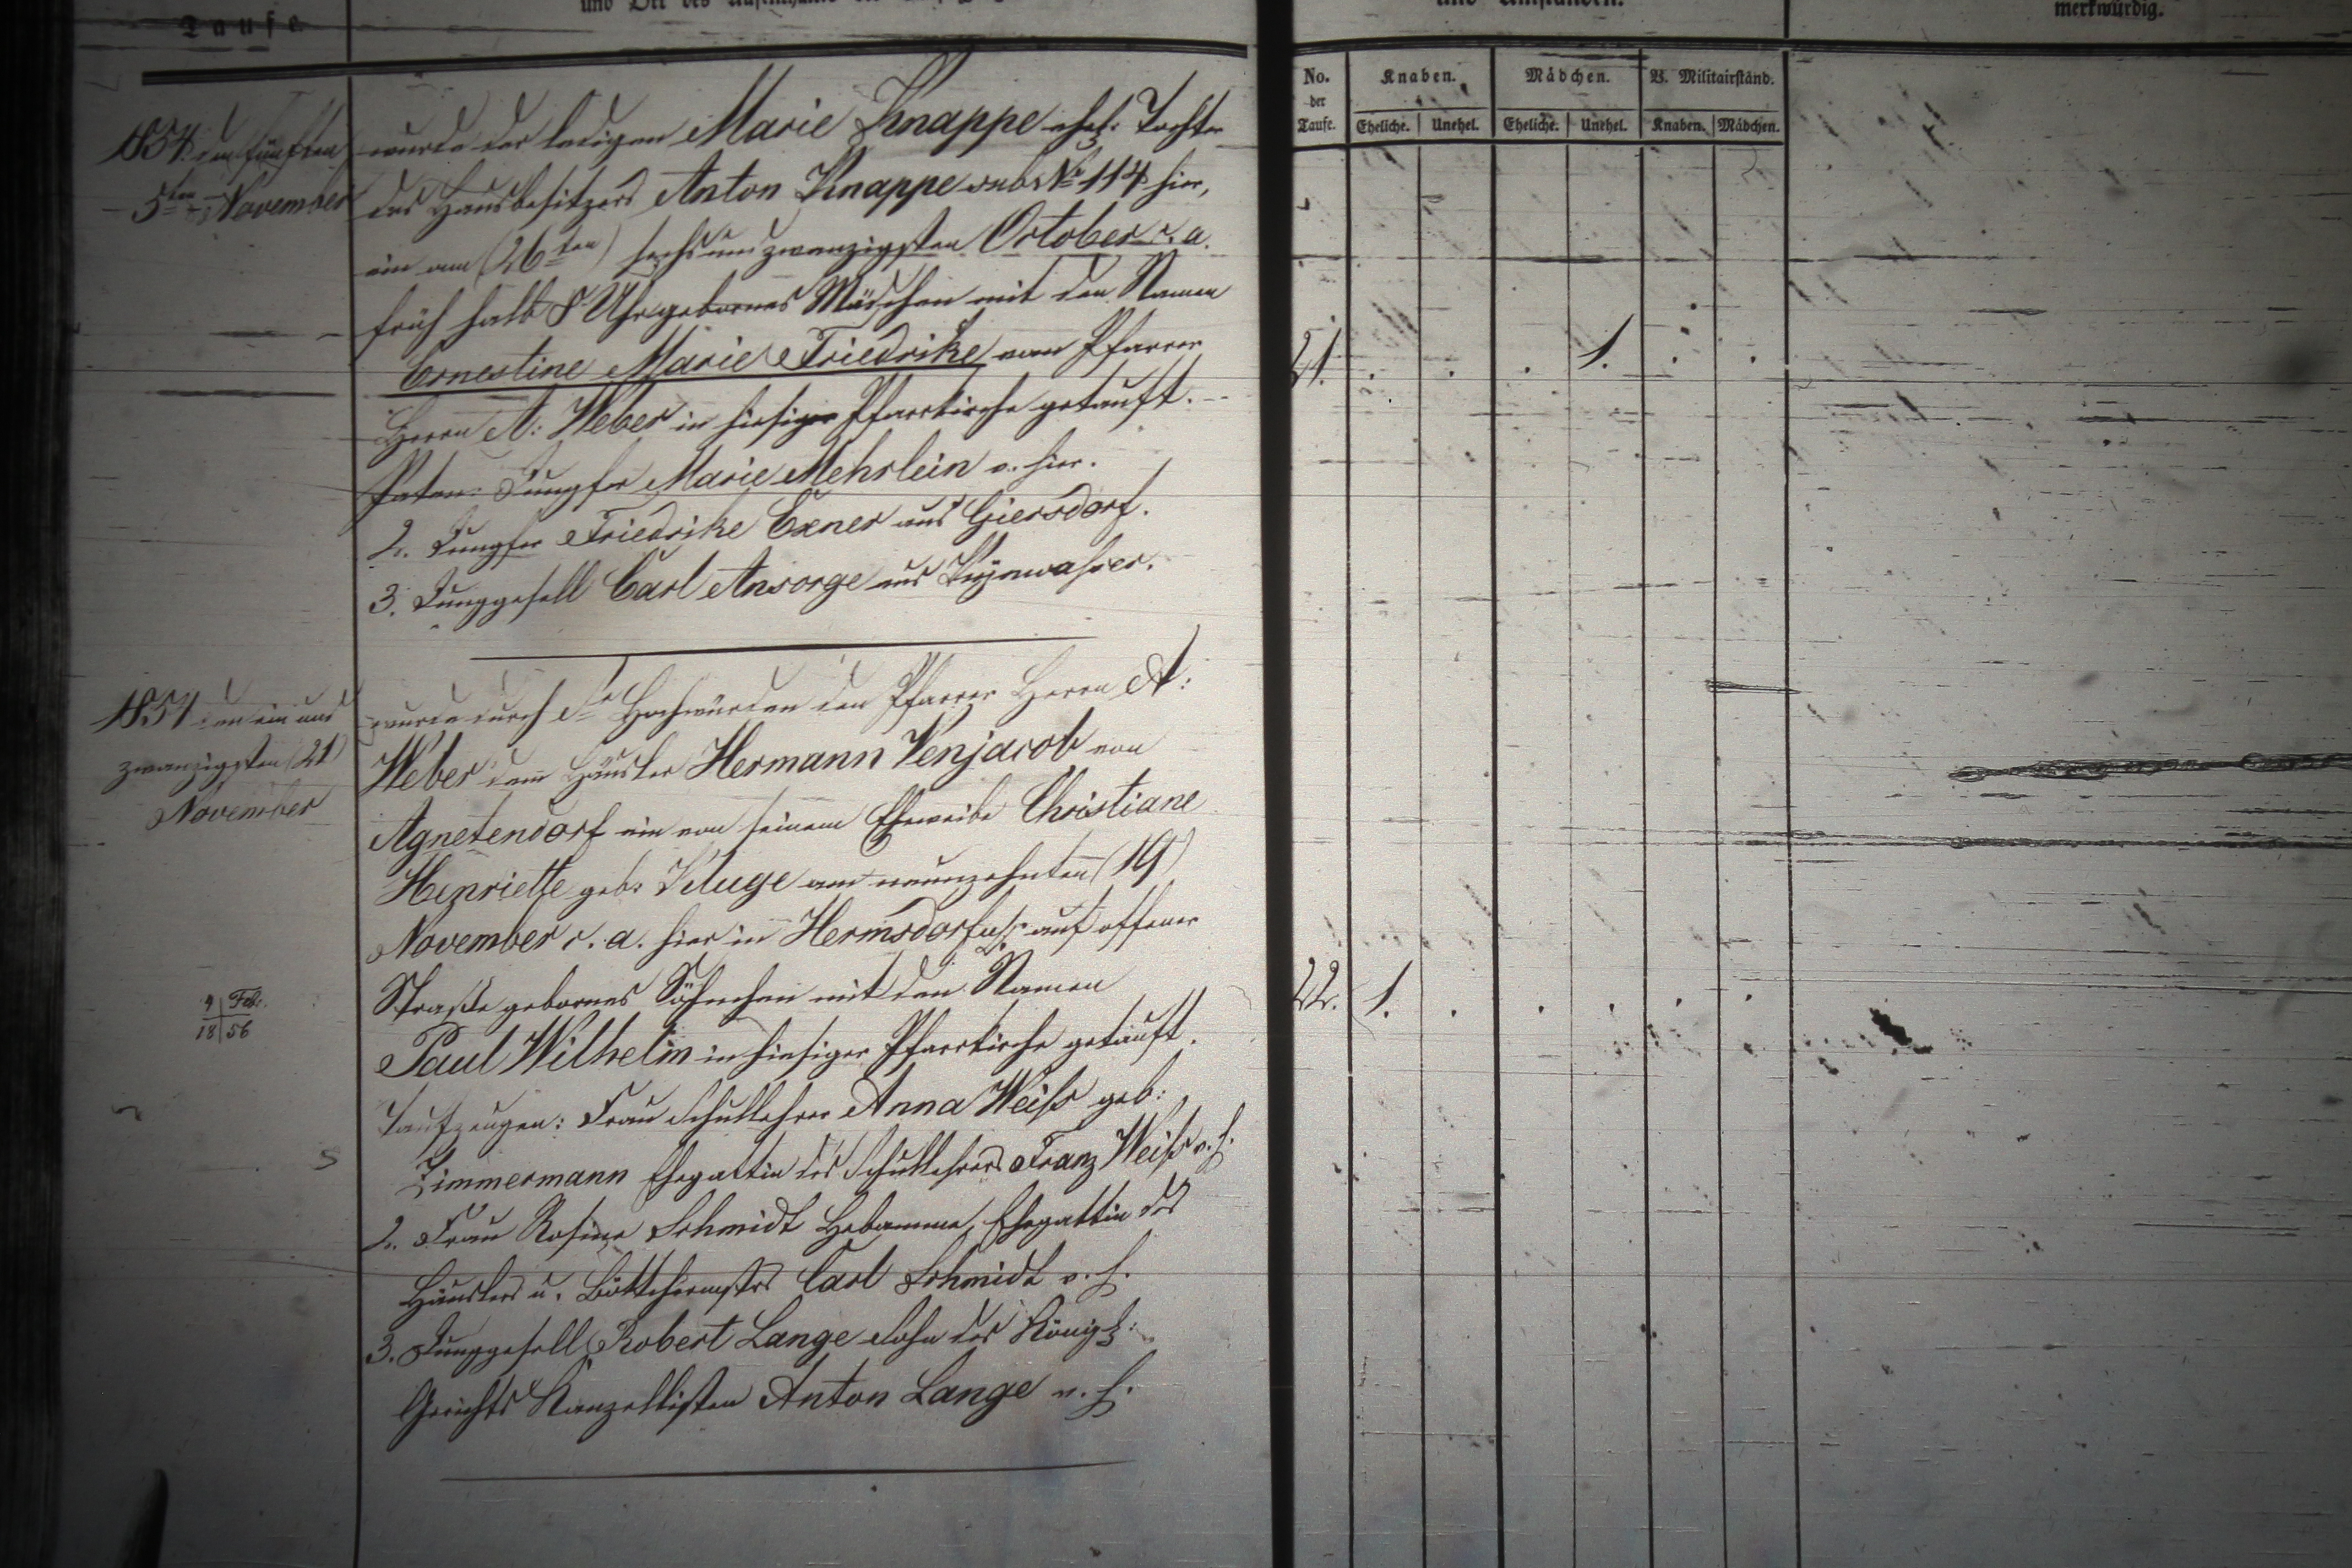 Taufe.
und Ort des Aufenthalts
und Umständen.
merkwürdig.
No. der Taufe.
Knaben.
Mädchen.
B. Militairständ.
Eheliche. Unehel. Eheliche. Unehel. Knaben. Mädchen.
1854 den fünften
5ten November
wurde der ledigen Marie Knappe ehel: Tochter
des Hausbesitzers Anton Knappe sub No 114 hier,
ein am (26ten) sechsundzwanzigsten October c. a.
früh halb 8 Uhr gebornes Mädchen mit den Namen
Ernestine Marie Friedrike vom Pfarrer
Herrn A: Weber in hiesiger Pfarrkirche getauft.
Paten: Jungfer Marie Mehrlein v. hier.
2. Jungfer Friedrike Exner aus Giersdorf.
3. Junggesell Carl Ansorge aus Kynwasser.
21. . . . 1. . .
1854 den ein und
zwanzigsten (21)
November
wurde durch Se Hochwürden den Pfarrer Herrn A:
Weber dem Häusler Hermann Venjacob von
Agnetendorf ein von seinem Eheweibe Christiane
Henriette geb: Kluge am neunzehnten (19)
November c. a. hier in Hermsdorf auf offener
Straße gebornes Söhnchen mit den Namen
Paul Wilhelm in hiesiger Pfarrkirche getauft.
Taufzeugen: Frau Schullehrer Anna Weiß geb:
Zimmermann Ehegattin des Schullehrers Franz Weiß v. h.
2. Frau Rosine Schmidt Hebamme, Ehegattin des
Häuslers u. Böttchermstrs Carl Schmidt v. h.
3. Junggesell Robert Lange Sohn des Königl:
Gerichts Kanzellisten Anton Lange v. h.
9 Febr.
18 56
22. 1. . . . . .